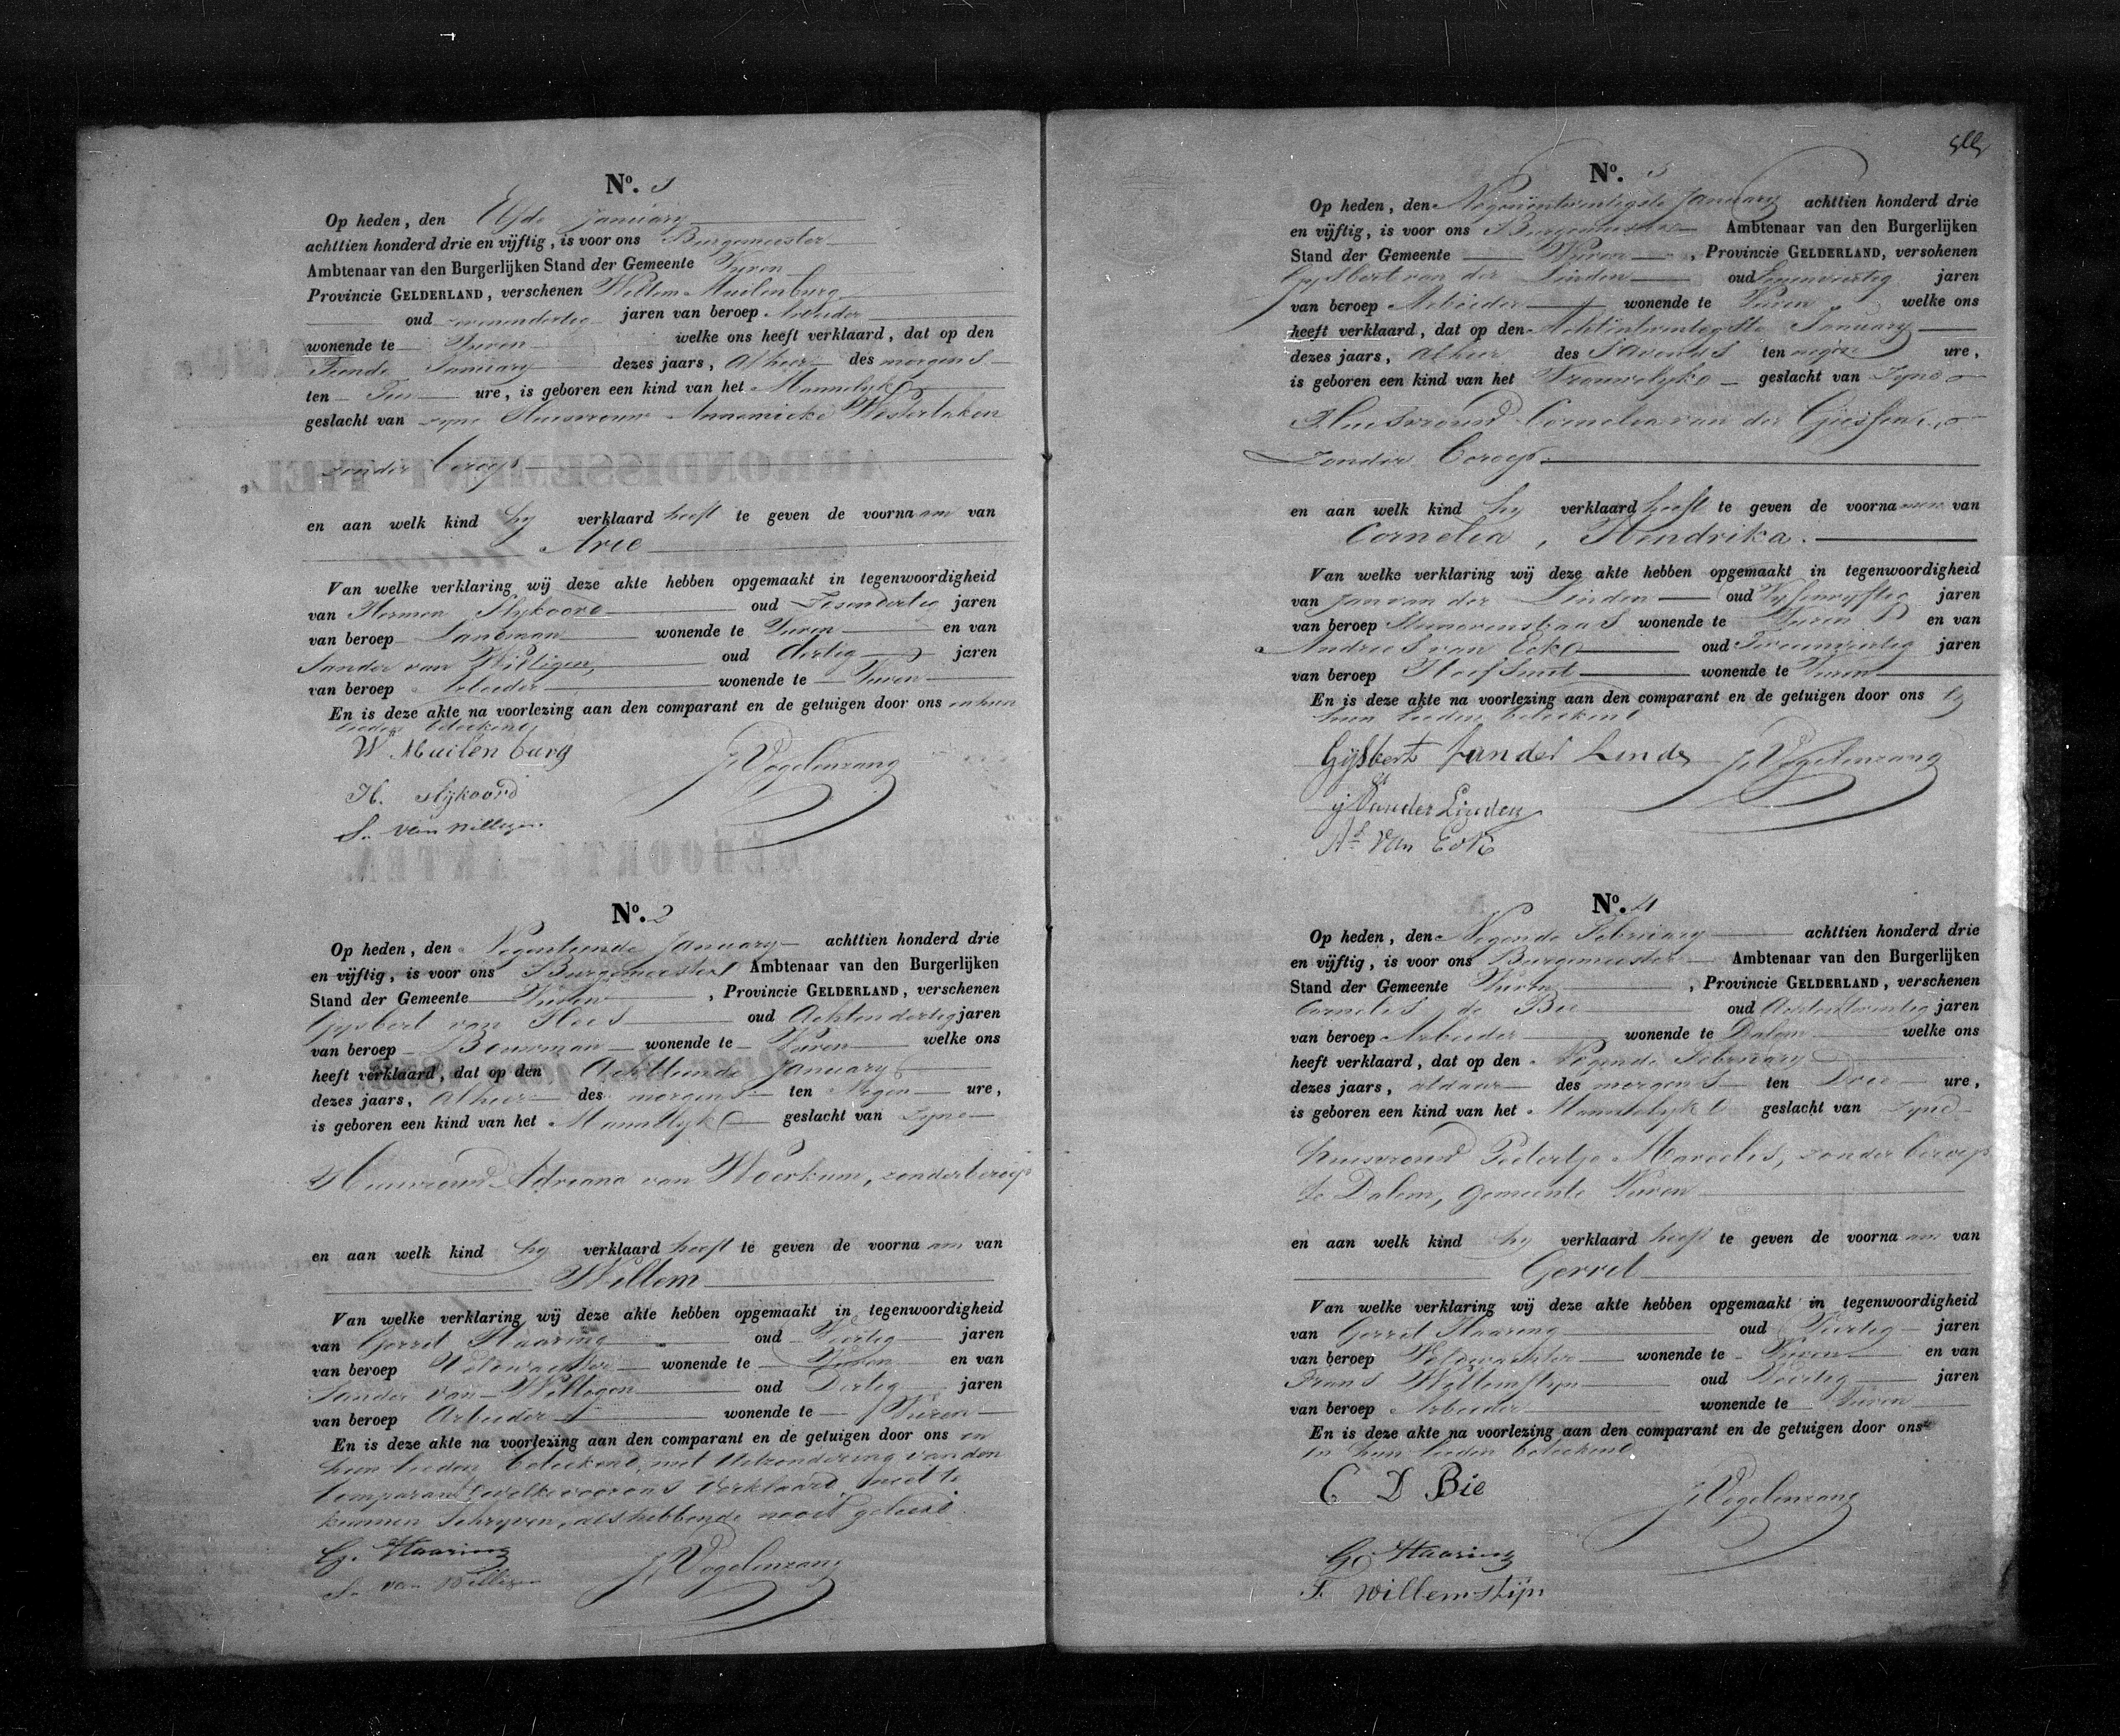 No. 1
Op heden, den Elfde January
achttien honderd drie en vijftig, is voor ons Burgemeester
Ambtenaar van den Burgerlijken Stand der Gemeente Vuren
Provincie GELDERLAND, verschenen Willem Muilenburg
oud jaren van beroep Arbeider
wonende te Vuren welke ons heeft verklaard, dat op den
Tiende January dezes jaars, Alhier des morgens
ten Tien ure, is geboren een kind van het Mannelyke
geslacht van zyne Huisvrouw Annemieke Westerlaken
zonder beroep
en aan welk kind hy verklaard heeft te geven de voornaam van
Arie
Van welke verklaring wij deze akte hebben opgemaakt in tegenwoordigheid
van Hermen Slijkoord oud Zesendertig jaren
van beroep Landman wonende te Vuren en van
Sander van Willigen oud Dertig jaren
van beroep Arbeider wonende te Vuren
En is deze akte na voorlezing aan den comparant en de getuigen door ons en hun
lieden beteekend
W. Muilenburg
J. Vogelenzang
H. Slijkoord
S. van Willigen
No. 2
Op heden, den Negentiende January achttien honderd drie
en vijftig, is voor ons Burgemeester Ambtenaar van den Burgerlijken
Stand der Gemeente Vuren, Provincie GELDERLAND, verschenen
Gysbert van Hees oud Achtendertig jaren
van beroep Bouwman wonende te Vuren welke ons
heeft verklaard, dat op den Achttiende January
dezes jaars, Alhier des morgens ten Negen ure,
is geboren een kind van het Mannelyke geslacht van Zyne
Huisvrouw Adriana van Woerkum, zonder beroep
en aan welk kind hy verklaard heeft te geven de voornaam van
Willem
Van welke verklaring wij deze akte hebben opgemaakt in tegenwoordigheid
van Gerrit Haaring oud Veertig jaren
van beroep Veldwachter wonende te Vuren en van
Sander van Willegen oud Dertig jaren
van beroep Arbeider wonende te Vuren
En is deze akte na voorlezing aan den comparant en de getuigen door ons en
hun lieden beteekend, met uitzondering van den
Comparant welke vooraas verklaard niet te
kunnen schryven, als hebbende nooit geleerd.
G. Haaring
J. Vogelenzang
S. van Willigen
No. 3
Op heden, den Negenentwintigste January achttien honderd drie
en vijftig, is voor ons Burgemeester Ambtenaar van den Burgerlijken
Stand der Gemeente Vuren, Provincie GELDERLAND, verschenen
Gysbert van der Linden oud Zevenveertig jaren
van beroep Arbeider wonende te Vuren welke ons
heeft verklaard, dat op den Achtentwintigste January
dezes jaars, Alhier des Savonds ten negen ure,
is geboren een kind van het Vrouwelyke geslacht van Zyne
Huisvrouw Cornelia van der Giessen
Zonder beroep
en aan welk kind hy verklaard heeft te geven de voornamen van
Cornelia, Hendrika.
Van welke verklaring wij deze akte hebben opgemaakt in tegenwoordigheid
van Jan van der Linden oud Vyfenvyftig jaren
van beroep wonende te Vuren en van
Andries van Eck oud Tweeenveertig jaren
van beroep Hoefsmit wonende te Vuren
En is deze akte na voorlezing aan den comparant en de getuigen door ons
hun lieden beteekend
Gijsbert van der Linde
J. Vogelenzang
van der Linden
As van Eck
No. 4
Op heden, den Negende February achttien honderd drie
en vijftig, is voor ons Burgemeester Ambtenaar van den Burgerlijken
Stand der Gemeente Vuren, Provincie GELDERLAND, verschenen
Cornelis de Bie oud Achtentwintig jaren
van beroep Arbeider wonende te Dalem welke ons
heeft verklaard, dat op den Negende February
dezes jaars, aldaar des morgens ten Drie ure,
is geboren een kind van het Mannelyke geslacht van Zyne
huisvrouw Pietertje Marcelis, zonder beroep
te Dalem, gemeente Vuren
en aan welk kind hy verklaard heeft te geven de voornaam van
Gerrit
Van welke verklaring wij deze akte hebben opgemaakt in tegenwoordigheid
van Gerrit Haaring oud Veertig jaren
van beroep Veldwachter wonende te Vuren en van
Frans Willemstyn oud Veertig jaren
van beroep Arbeider wonende te Vuren
En is deze akte na voorlezing aan den comparant en de getuigen door ons
en hun lieden beteekend
C D Bie
J. Vogelenzang
G. Haaring
F. Willemstijn